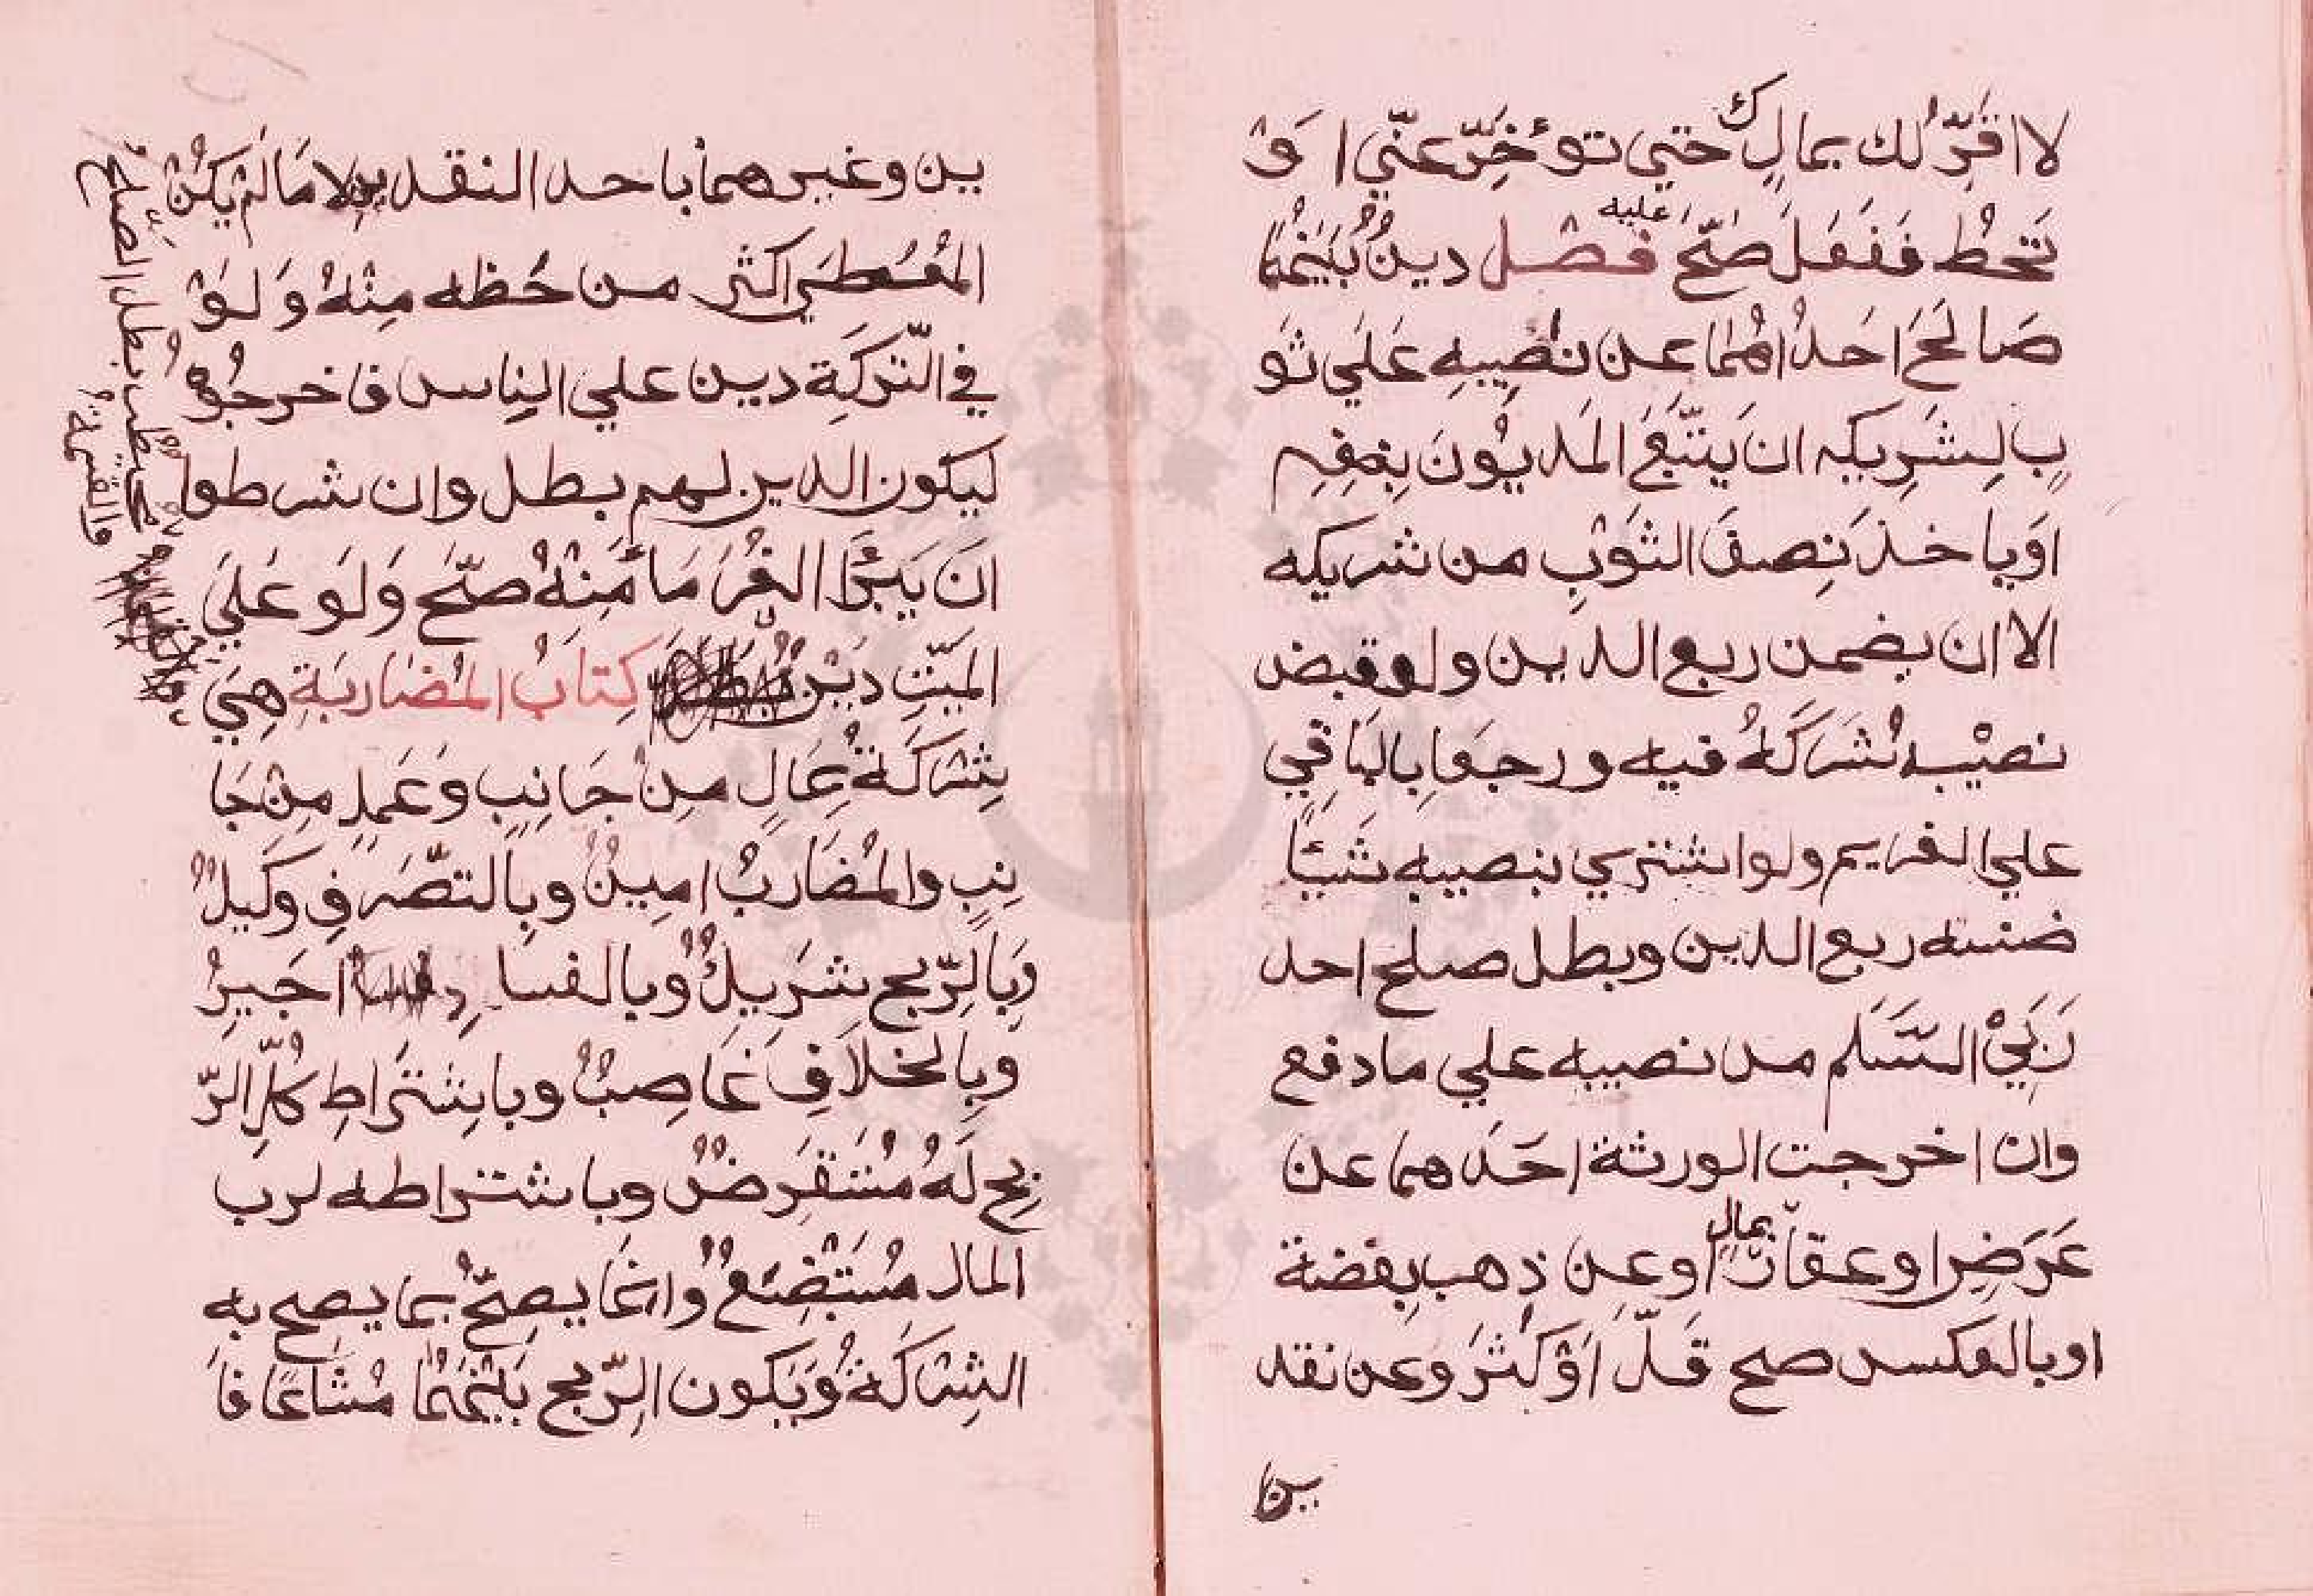 لا اقِرّ لك بمالك حتي توٴخِّر عنّي اوْ
تحُط ففعَل صَحّ عليه فصل دينٌ بَيْنهُما
صَالحَ احَدُاهُمَا عن نَصِيبِهِ عَلَي ثَو
بٍ لِشَرِيكِه ان يَتّبَعَ المَديُونَ بِنِصْفِهِ
اوَياخذ نِصفَ الثَوْبِ من شريكه
الا ان يضمن ربع الدين ولو قبض
نصيْبه شَرَكَهُ فيه ورجعا بالبَاقِي
علي الغريم ولو اشتري بنصيبه شَيئًا
ضمنه ربع الدين وبطل صلح احد
رَبَيْ السَّلم من نصيبه علي ما دفع
وان اخرجت الورثة احَدهما عن
عَرَضٍ او عقارٍ بمالٍ اوعن ذهب بفضة
او بالعكس صح قَلّ اَوْ كثرَ وعن نقد
ين
ين وغيرهما باحد النقدين لا مَا لمْ يَكُنْ
المُعْطَي اكثر من حَظه مِنْهُ وَلَوْ
في التّركَةِ دين علي الناس فاخرجُوهُ
لَيكون الدين لهم بطل وان شرطوا
انَ يَبَرَّا الغُرَمَاٴ مِنْهُ صَحّ وَلَو عَلَيَ
المَيّتِ دَيْنٌ كِتابُ المُضاربَةِ هِيَ
شَرَكَةٌ بمَالٍ مِن جَانِبٍ وَعَمَلٍ مِنْ جَا
نِبٍ والمُضَاربُ امِينٌ وبِالتصّرفِ وَكَيلٌ
وَبَالرِّبح شَرَيكٌ وبالفسادِ اجَيرٌ
وبِالخلاَفِ غَاصِبٌ وباشْتَراطِ كُلّ الرّ
بح لَهُ مُسْتقْرَضٌ وباشتراطه لرب
المال مُسْتَبْضِعٌ وانمَا يصِحّ بما يصح به
الشِرَاكَةُ وَيَكون الرّبح بَيْنَهُمَا مُشَاعًا فاَ
بطل الصلح
والقسمة